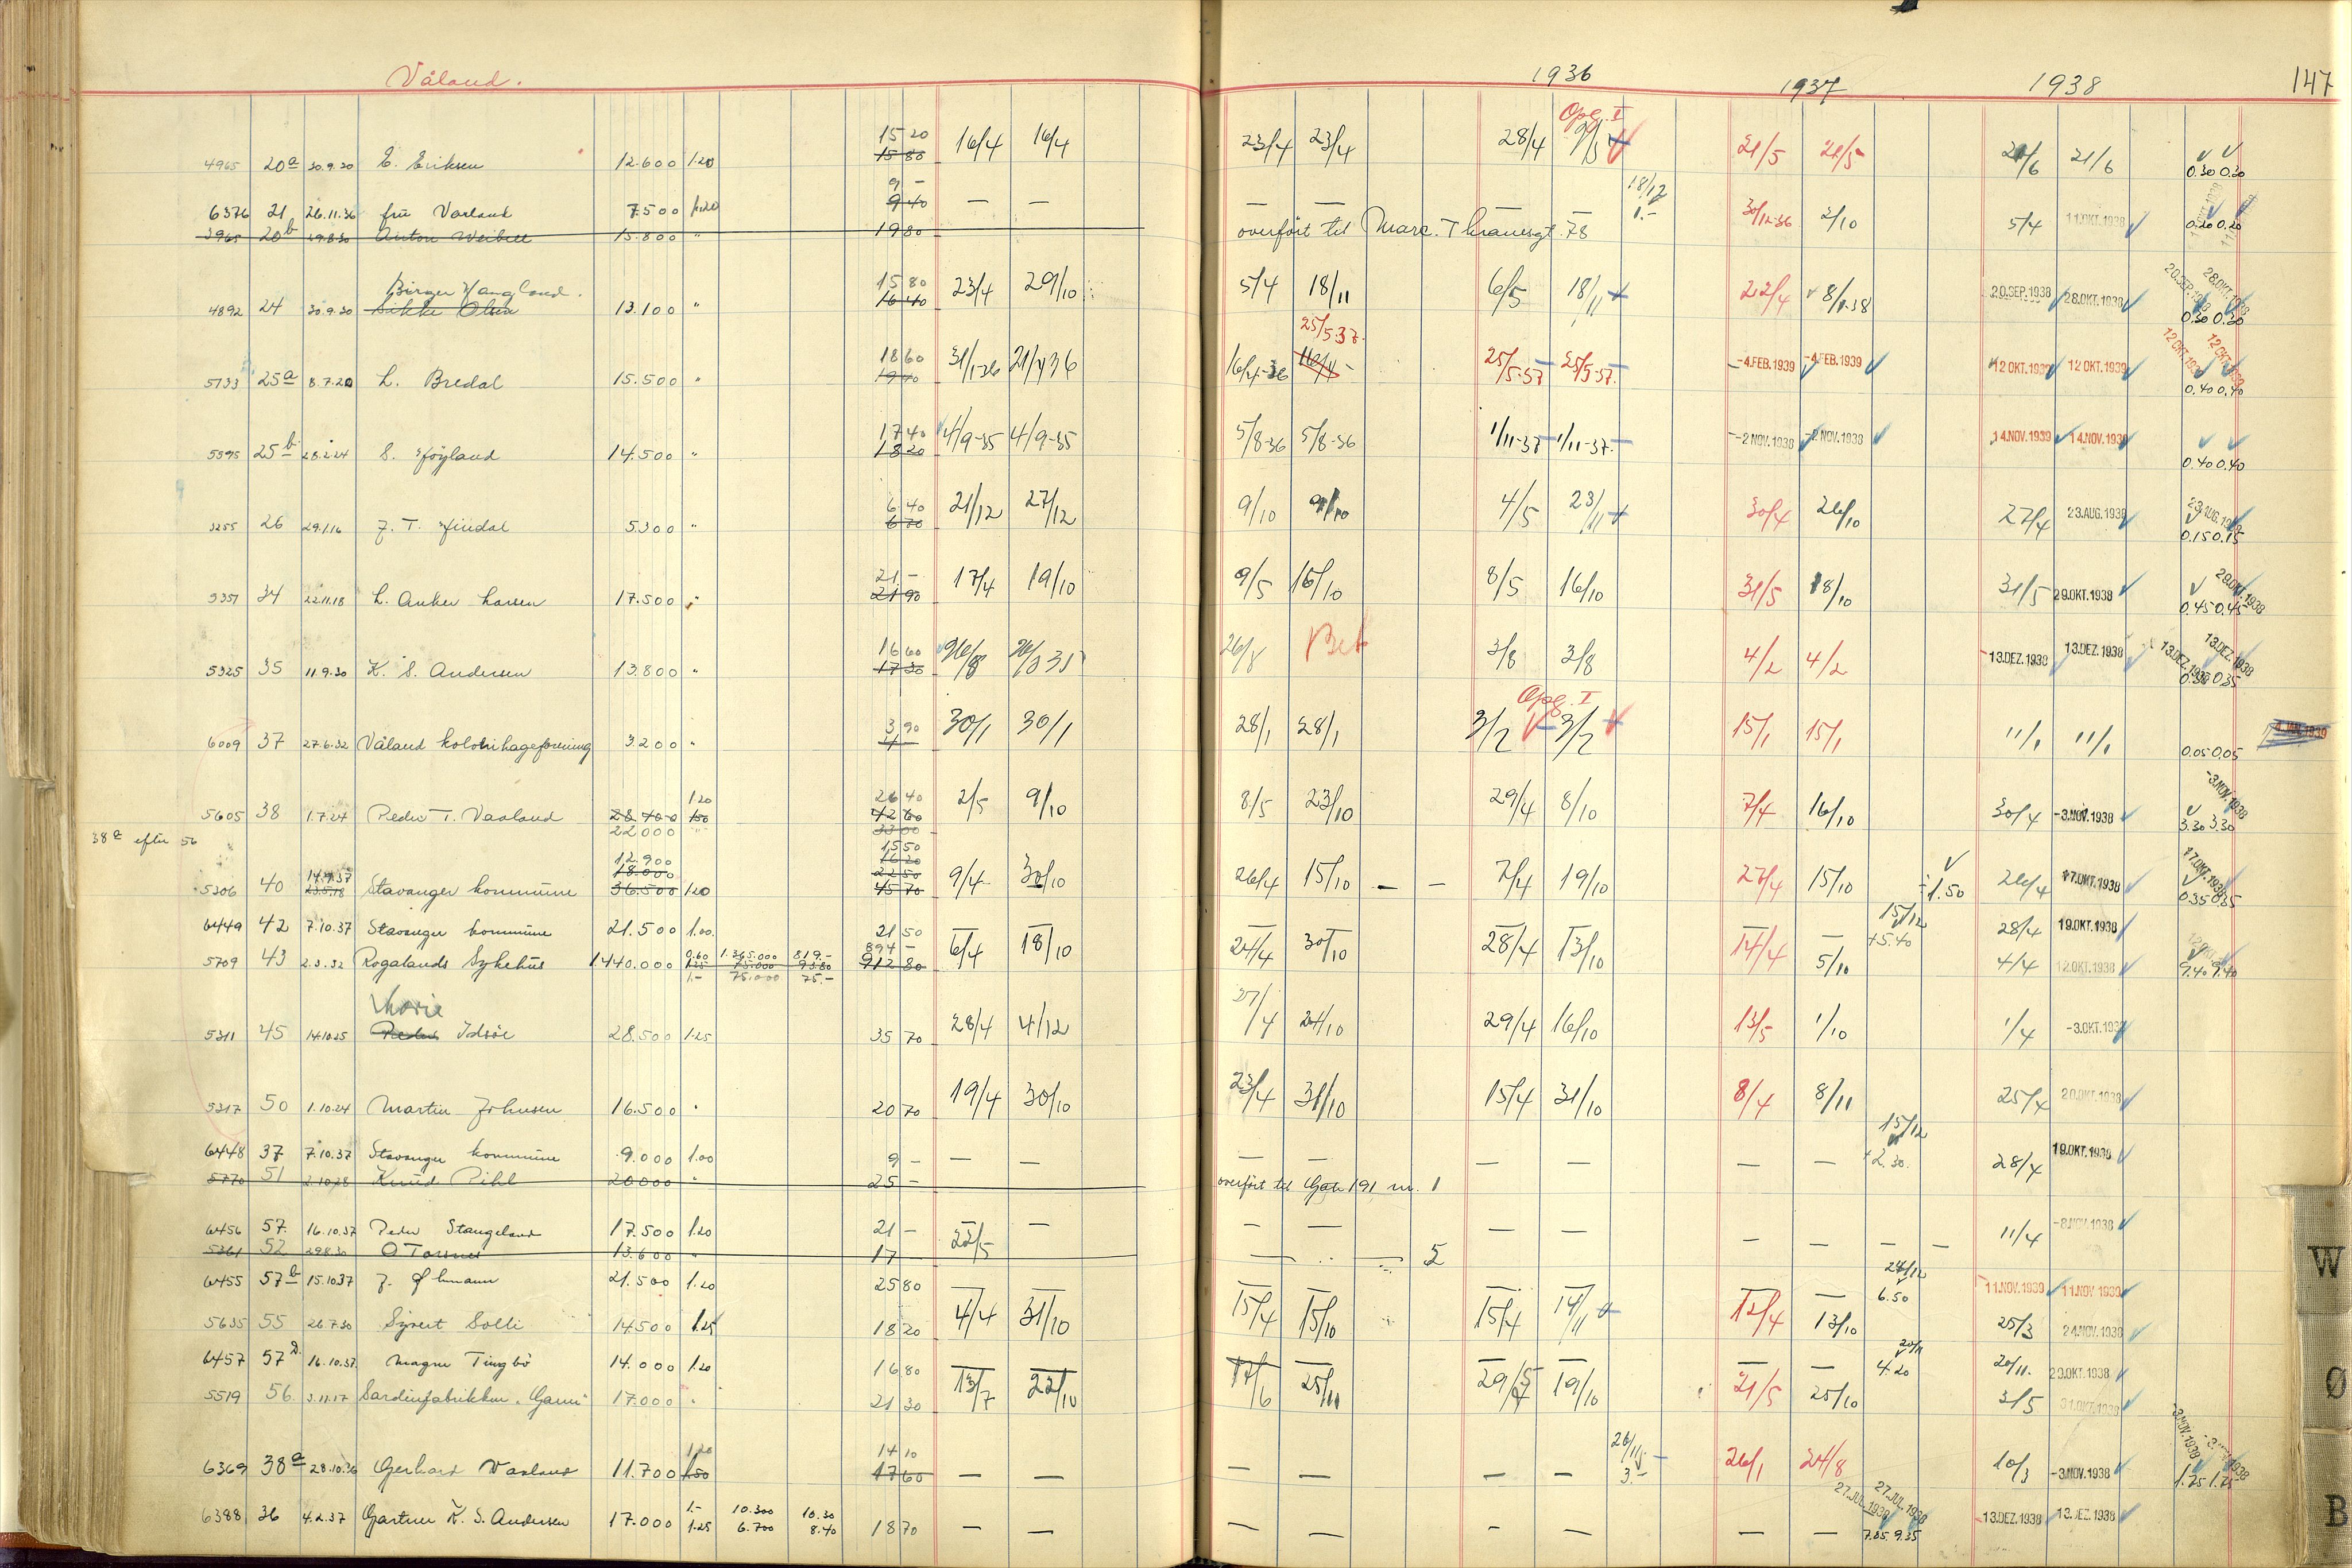 Våland.
1936 1937 1938 147
Opg. I
4965 20a 30.9.30 E. Eriksen 12.600 1.20 15 20 15 80 16/4 16/4 23/4 23/4 28/4 21/5 21/5 21/6 21/6 0.30 0.30
6376 21 26.11.36 fru Varland 7.500 1.20 9 - 9 40 — — — — — — 18/12 1.- 30/12-36 2/10 5/4 11.OKT.1938 0.20 0.20
3965 20b 29.8.30 Anton Weibell 15.800 " 19 80 overført til Marc. Thranesgt. 78
Birger Haugland.
4892 24 30.9.30 Olsen 13.100 " 15 80 16 40 23/4 29/10 5/4 18/11 6/5 18/11 22/4 8/1-38 20.SEP.1938 28.OKT.1938 20.SEP.1938 28.OKT.1938 0.30 0.30
25/5.37.
5133 25a 8.7.20 L. Bredal 15.500 " 18 60 19 40 31/1-36 21/4 36 16/4-36 16/4 25/5-37 25/5-37. -4.FEB.1939 -4.FEB.1939 12 OKT.1939 12 OKT.1939 12 OKT.1939 12 OKT.1939 0.40 0.40
5595 25b 28.2.24 S. Høyland 14.500 " 17 40 18 20 4/9-35 4/9-35 5/8-36 5/8-36 1/11-37 1/11-37. -2 NOV.1938 -2 NOV.1938 14.NOV.1939 14.NOV.1939 0.40 0.40
3255 26 29.1.16 J. T. Findal 5.300 " 6 40 6 70 21/12 27/12 9/10 9/10 4/5 23/11 30/4 26/10 27/4 23.AUG.1938 23.AUG.1938 0.15 0.15
3351 34 22.11.18 L. Anker Larsen 17.500 " 21 - 21 90 17/4 19/10 9/5 15/10 8/5 16/10 31/5 18/10 31/5 29.OKT.1938 29.OKT.1938 0.45 0.45
5325 35 11.9.30 K. S. Andersen 13.800 " 16 60 17 30 26/8 26/8 35 26/8 Bet 3/8 3/8 4/2 4/2 13.DEZ.1938 13.DEZ.1938 13.DEZ.1938 13.DEZ.1938 0.35 0.35
Opg. I
6009 37 27.6.32 Våland kolonihageforening 3.200 " 3 90 4 30/1 30/1 28/1 28/1 3/2 3/2 15/1 15/1 11/1 11/1 0.05 0.05 4.JAN.1939
5605 38 1.7.24 Peder T. Vaaland 28.400 22000 1.20 1.50 26 40 42 60 33 00 2/5 9/10 8/5 23/10 29/4 8/10 7/4 16/10 30/4 -3.NOV.1938 -3.NOV.1938 3.30 3.30
38a efter 56
5306 40 14.9.37 23.5.18 Stavanger kommune 12.900 18.000 36.500 1.20 15 50 16 20 22 50 45 70 9/4 30/10 26/4 15/10 — — 7/4 19/10 27/4 15/10 1.50 26/4 17.OKT.1938 17.OKT.1938 0.35 0.35
6449 42 7.10.37 Stavanger kommune 21.500 1.00. 21 50 — — — — — — — — 15/12 +5.40 28/4 19.OKT.1938
5709 43 2.3.32 Rogalands Sykehus 1.440.000 0.60 1.25 1.- 1.365.000 75.000 75.000 819.- 93.80 75.- 894 - 912 80 6/4 18/10 24/4 30/10 28/4 13/10 14/4 5/10 4/4 12.OKT.1938 9.40 9.40
5311 45 14.10.25 Marie Peder Idsöe 28.500 1.25 35 70 28/4 4/12 27/4 24/10 29/4 16/10 13/5 1/10 1/4 -3.OKT.1938
5317 50 1.10.24 Martin Johnsen 16.500 " 20 70 19/4 30/10 23/4 31/10 15/4 31/10 8/4 8/11 25/4 20.OKT.1938
6448 37 7.10.37 Stavanger kommune 9.000 1.00 9 - — — — — — — — — 15/12 +2.30. 28/4 19.OKT.1938
5770 51 2.10.28 Knud Pihl 20000 " 25 - overført til Gate 191 nr. 1
6456 57. 16.10.37 Peder Stangeland 17.500 1.20 21 - 22/5 — — — — — — — — — 11/4 -8.NOV.1938
5361 52 29.8.30 13.600 " 17 — — 5
6455 57b 15.10.37 21.500 1.20 25 80 — — — — — — — — 24/12 6.50 11.NOV.1939 11.NOV.1939
5635 55 26.7.30 Syvert Solli 14.500 1.25 18 20 4/4 31/10 15/4 15/10 15/4 14/11 12/4 13/10 25/3 24.NOV.1938
6457 57d. 16.10.37. Magne Tingbö 14.000 1.20 16 80 — — — — — — — — 20/11 4.20 20/11. 29.OKT.1938
5519 56. 3.11.17 Sardinfabrikken "Gann" 17.000 " 21 30 13/7 22/10 12/6 25/11 29/5 19/10 21/5 25/10 3/5 31.OKT.1938
6369 38a 28.10.36 Gerhard Vaaland 11.700 1.20 1.50 14 10 17 60 — — — — — — 26/11 3.- 26/1 24/8 10/3 -3.NOV.1938 -3.NOV.1938 1.25 1.25
6388 36 4.2.37 Gartner K. S. Andersen 17.000 1.- 1.25 10.300 6.700 10.30 8.40 18 70 — — — — — — — — 27.JUL.1938 27.JUL.1938 7.85 9.35 13.DEZ.1938 13.DEZ.1938
W
Ø
B